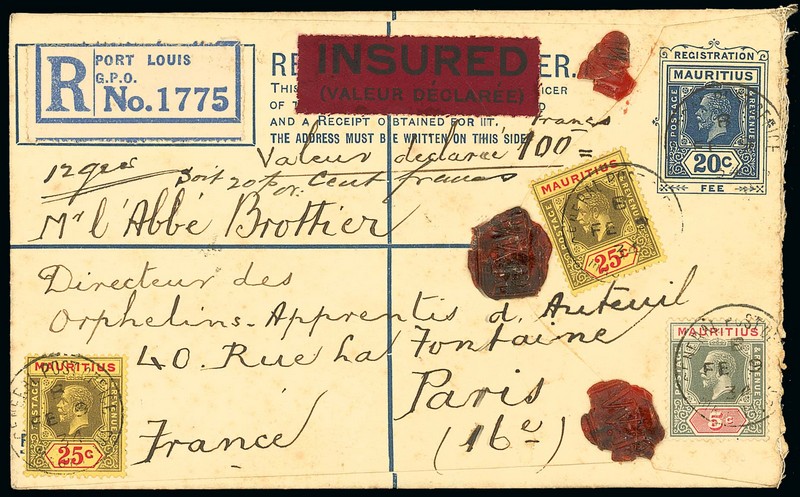 R
PORT LOUIS
G.P.O.
No. 1775
INSURED
(VALEUR DÉCLARÉE)
RE ER.
THIS ICER
OF T D
AND A RECEIPT OBTAINED FOR IT.
THE ADDRESS MUST BE WRITTEN ON THIS SIDE
REGISTRATION
MAURITIUS
POSTAGE
& REVENUE
20c
FEE
Francs
Valeur déclarée 100=
12 grs
Soit 20 p or. Cent francs
Mr l'Abbé Brottier
MAURITIUS
POSTAGE
& REVENUE
25c
Directeur des
Orphelins-Apprentis d'Auteuil
40. Rue La Fontaine
Paris
(16e)
France
MAURITIUS
POSTAGE
& REVENUE
5c
MAURITIUS
POSTAGE
& REVENUE
25c